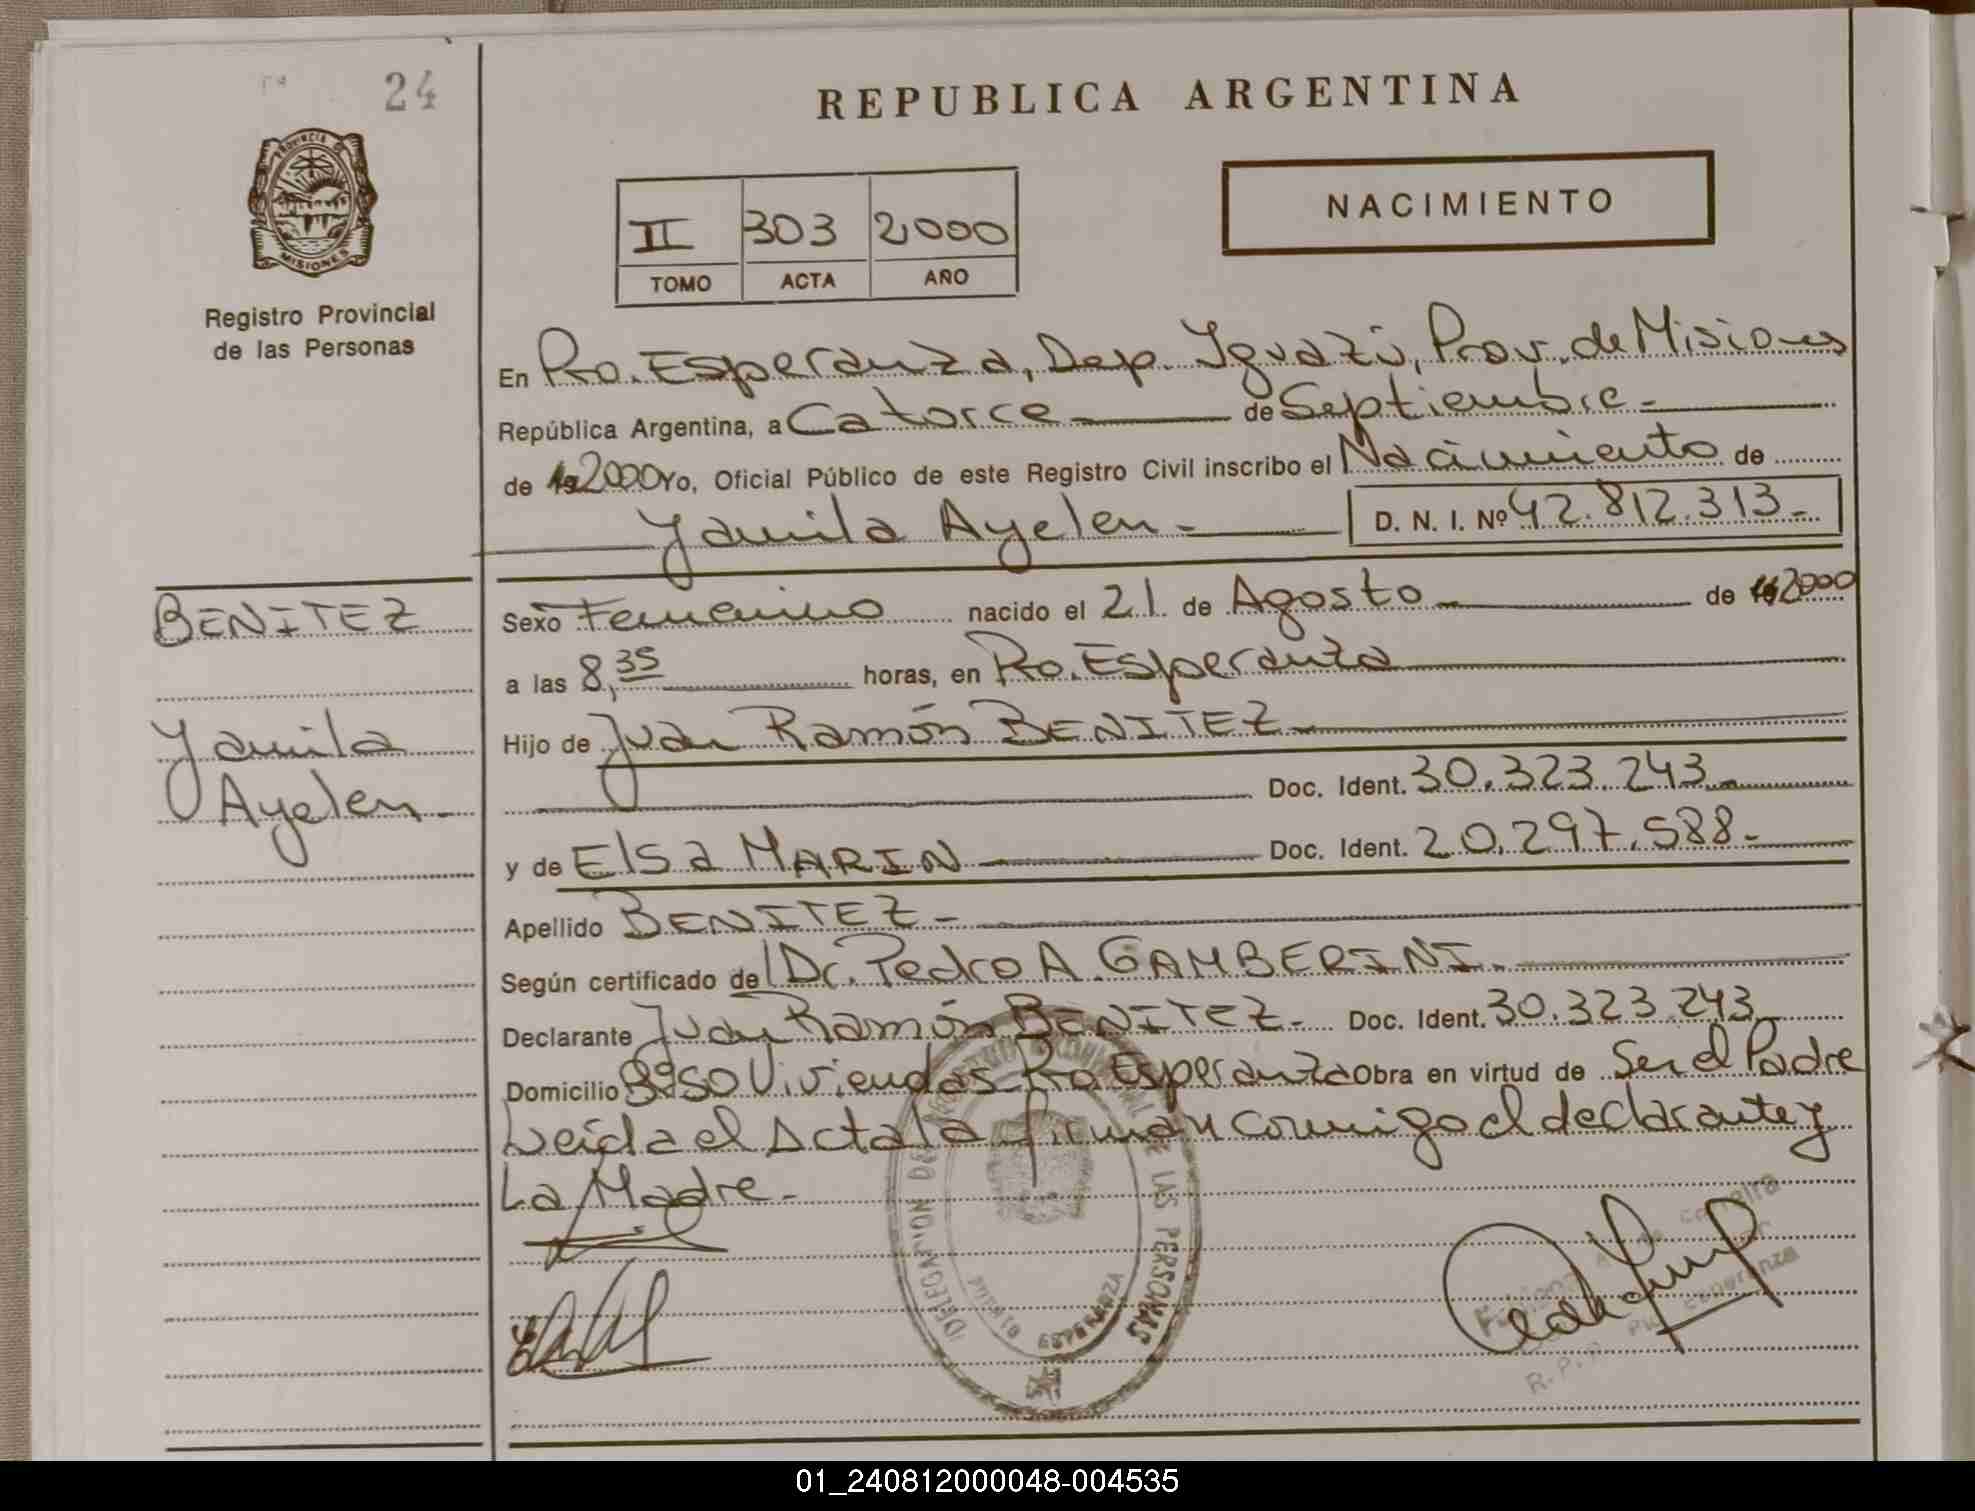 24
REPUBLICA ARGENTINA
PROVINCIA DE
MISIONES
Registro Provincial
de las Personas
II 303 2000
TOMO ACTA AÑO
NACIMIENTO
En Pto. Esperanza, Dep. Iguazú, Prov. de Misiones
República Argentina, a Catorce de Septiembre.-
de 2000 Yo, Oficial Público de este Registro Civil inscribo el Nacimiento de
Yamila Ayelen.- D. N. I. Nº 42.812.313.-
BENITEZ
Yamila
Ayelen.-
Sexo Femenino nacido el 21 de Agosto de 2000
a las 8,35 horas, en Pto. Esperanza
Hijo de Juan Ramón BENITEZ.-
Doc. Ident. 30.323.243.-
y de Elsa MARIN Doc. Ident. 20.297.588.-
Apellido BENITEZ.-
Según certificado del Dr. Pedro A. GAMBERINI.
Declarante Juan Ramón BENITEZ.- Doc. Ident. 30.323.243
Domicilio Bº 50 Viviendas Pto Esperanza Obra en virtud de Ser el Padre
Leída el Acta la firman conmigo el declarante y
La Madre.-
DELEGACION DE LAS PERSONAS
PUERTO ESPERANZA
01_240812000048-004535